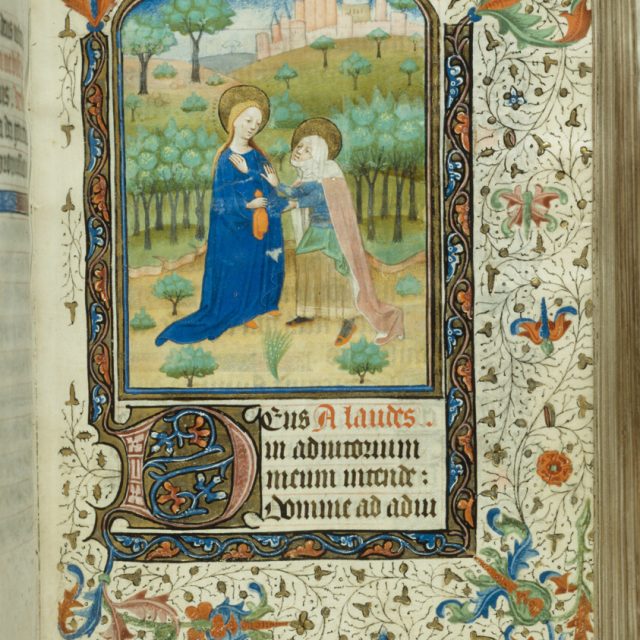 Deus A laudes
in adiutorium
meum intende:
Domine ad adiu